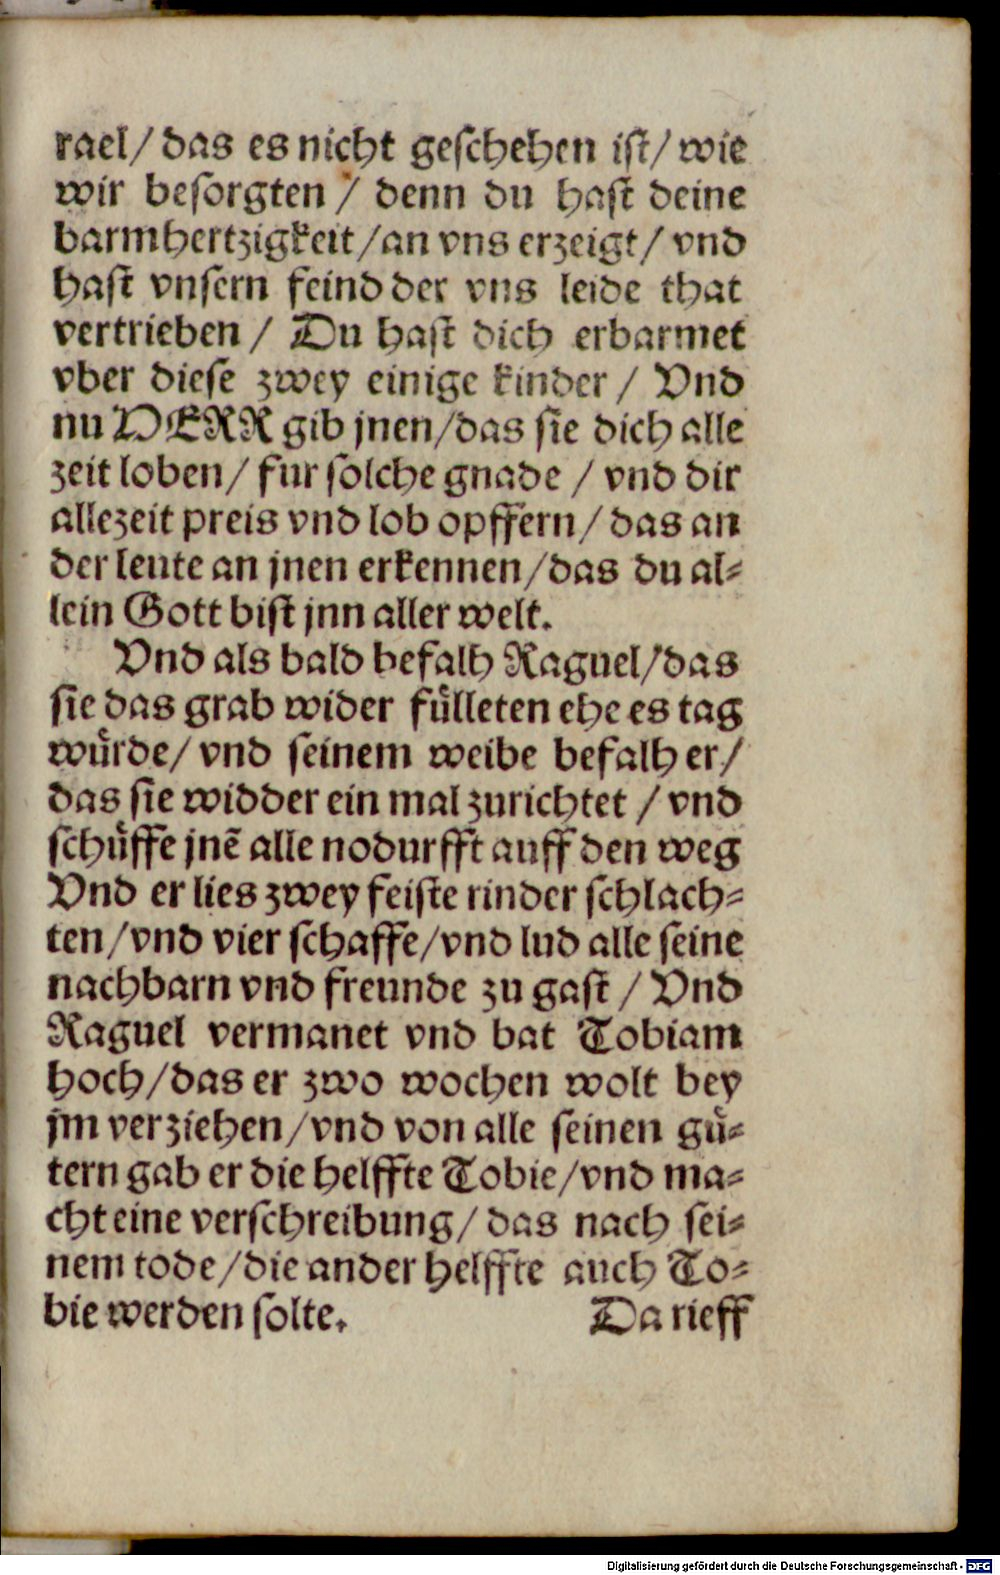 rael/ das es nicht geschehen ist/ wie
wir besorgten / denn du hast deine
barmhertzigkeit/an vns erzeigt/ vnd
hast vnsern feind der vns leide that
vertrieben / Du hast dich erbarmet
vber diese zwey einige kinder / Vnd
nu HERR gib jnen/das sie dich alle
zeit loben/ fur solche gnade / vnd dir
allezeit preis vnd lob opffern/ das an
der leute an jnen erkennen/das du al=
lein Gott bist jnn aller welt.
Vnd als bald befalh Raguel/das
sie das grab wider fuͤlleten ehe es tag
wuͤrde/ vnd seinem weibe befalh er/
das sie widder ein mal zurichtet / vnd
schuͤffe jnẽ alle nodurfft auff den weg
Vnd er lies zwey feiste rinder schlach=
ten/vnd vier schaffe/vnd lud alle seine
nachbarn vnd freunde zu gast / Vnd
Raguel vermanet vnd bat Tobiam
hoch/das er zwo wochen wolt bey
jm verziehen/vnd von alle seinen guͤ=
tern gab er die helffte Tobie/vnd ma=
cht eine verschreibung/ das nach sei=
nem tode/die ander helffte auch To=
bie werden solte. Da rieff
Digitalisierung gefördert durch die Deutsche Forschungsgemeinschaft - DFG